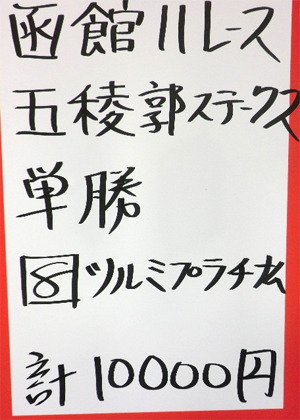 函館11レース
五稜郭ステークス
単勝
8 ツルミプラチナム
計10000円